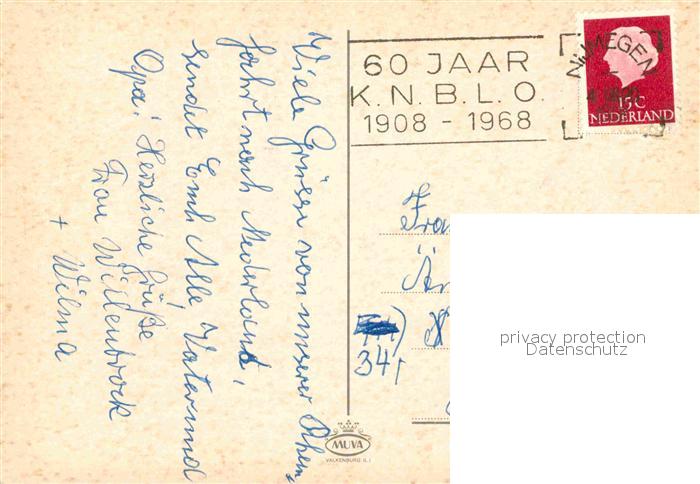 Viele Grüsse von unserer Rhein-
fahrt nach Nederland,
sendet Euch Alle, Vater und
Opa! Herzliche Grüße
Frau Wilenbrock
+ Wilma
60 JAAR
K.N.B.L.O.
1908 - 1968
NIJMEGEN
15C
NEDERLAND
34,
MUVA
VALKENBURG (L.)
privacy protection
Datenschutz